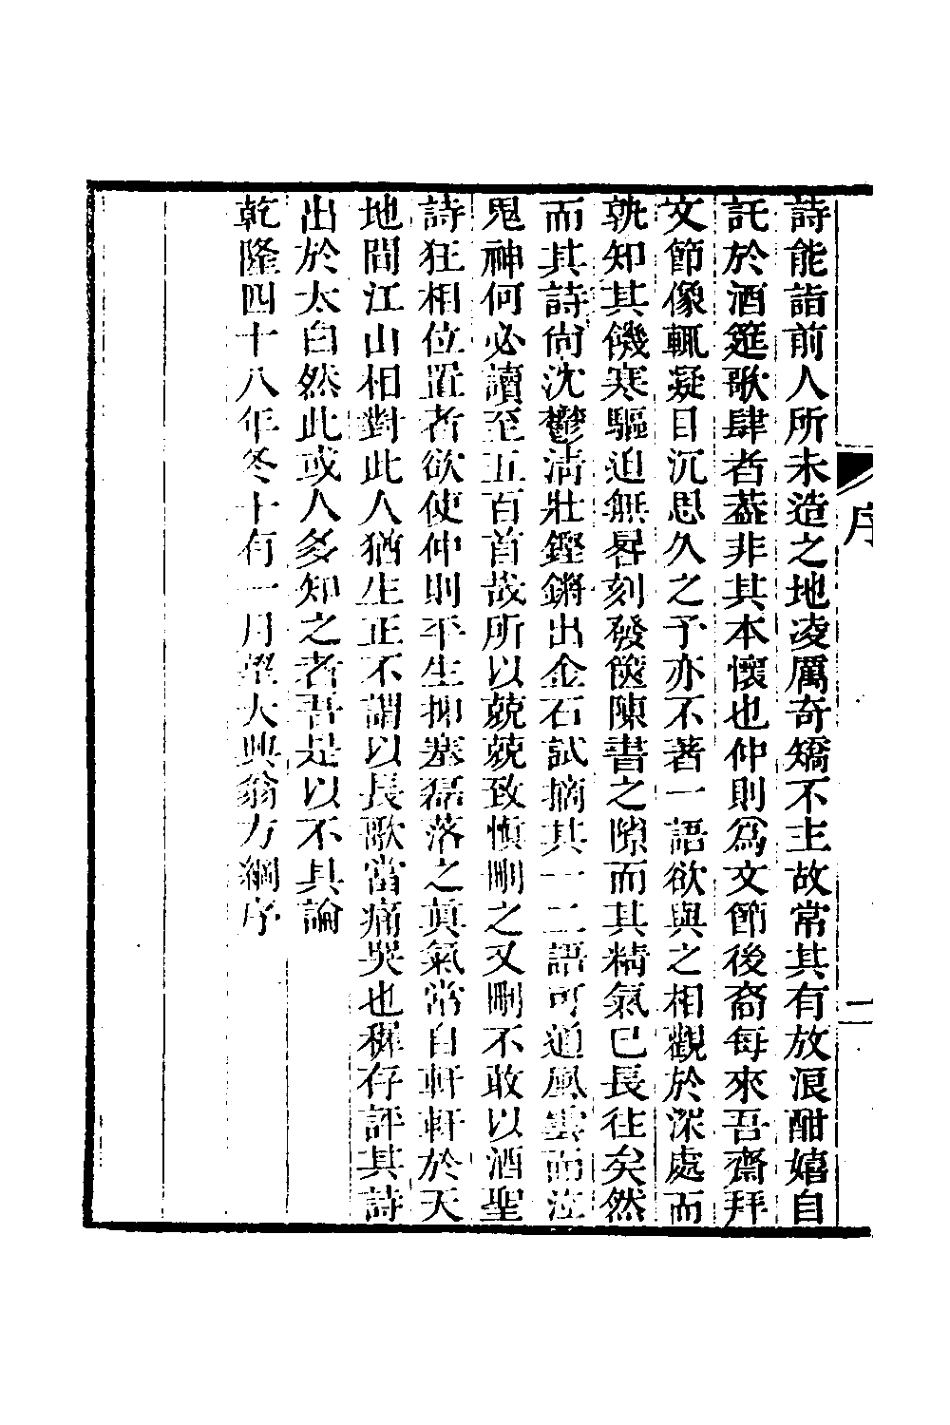 詩能詣前人所未造之地凌厲奇矯不主故常其有放浪酣嬉自
託於酒筵歌肆者葢非其本懷也仲則爲文節後裔每來吾齋拜
文節像輒凝目沉思久之予亦不著一語欲與之相觀於深處而
孰知其饑寒驅迫無晷刻發篋陳書之隙而其精氣已長往矣然
而其詩尙沈鬱淸壯鏗鏘出金石試摘其一二語可通風雲而泣
鬼神何必讀至五百首哉所以兢兢致愼刪之又刪不敢以酒聖
詩狂相位置者欲使仲則平生抑塞磊落之眞氣常自軒軒於天
地間江山相對此人猶生正不謂以長歌當痛哭也穉存評其詩
出於太白然此或人多知之者吾是以不具論
乾隆四十八年冬十有一月望大興翁方綱序
序
二